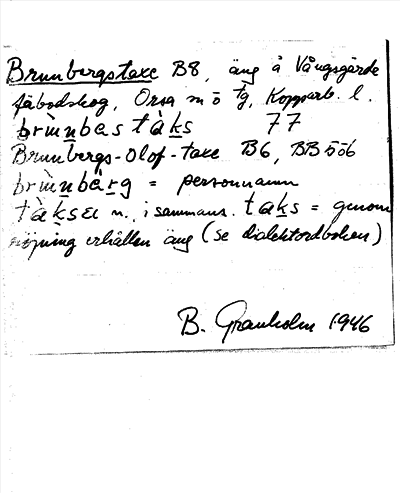 Brunbergstaxe B8, äng å Vångsgärde
fäbodskog, Orsa m o tg, Kopparb. l.
brùnbas tàks 77
Brunbergs-Olof-taxe B6, BB 556
brùnbàrg = personnamn
tàksɛ n. i sammans. taks = genom
röjning erhållen äng (se dialektordboken)
B. Granholm 1946